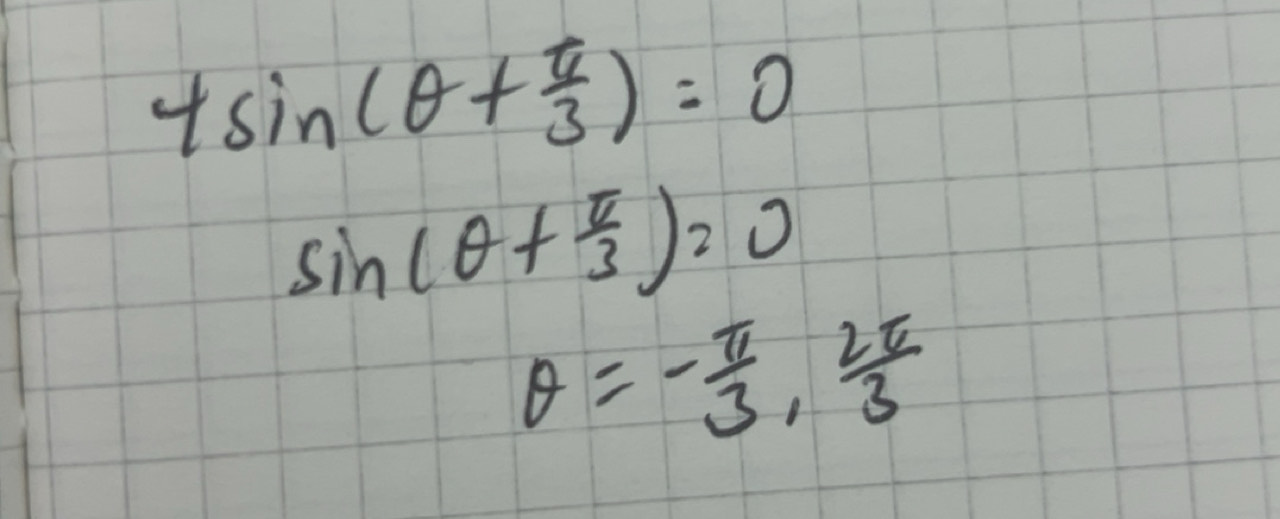 4sin(θ+π/3)=0
sin(θ+π/3)=0
θ=-π/3, 2π/3